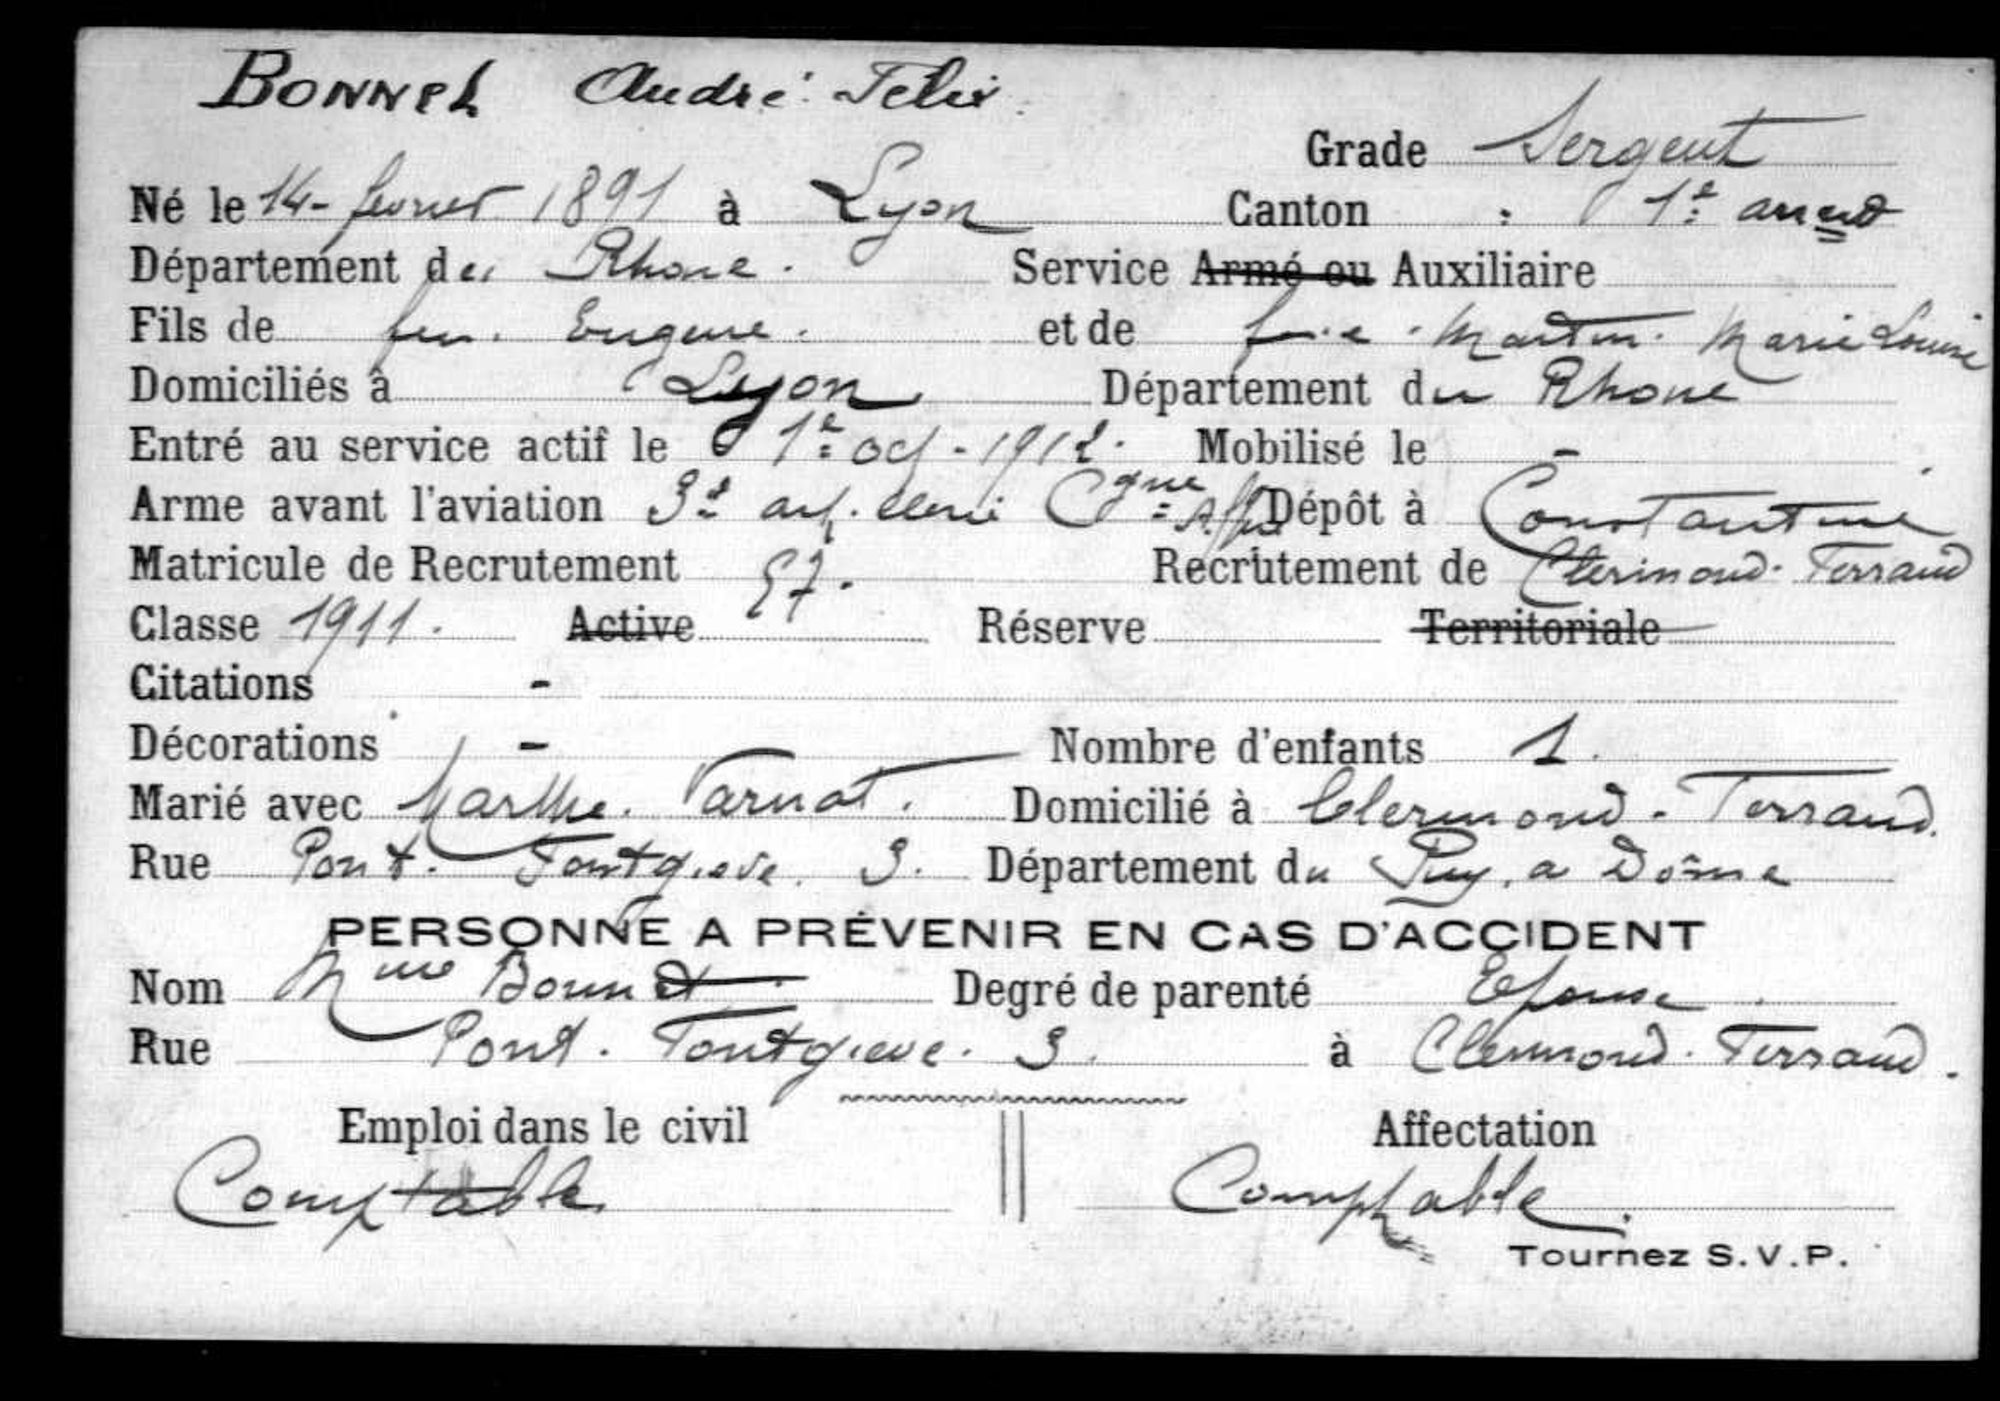 BONNEL André Félix
Grade Sergent
Né le 14 février 1891 à Lyon Canton : 1er arrondt
Département du Rhone. Service Armé ou Auxiliaire
Fils de feu. Eugene. et de feue. Martin. Marie Louise
Domiciliés à Lyon Département du Rhone
Entré au service actif le 1er oct - 1912. Mobilisé le -
Arme avant l'aviation 3e art. Cgne Dépôt à Constantine
Matricule de Recrutement 57. Recrutement de Clermond-Ferrand
Classe 1911. Active Réserve Territoriale
Citations -
Décorations - Nombre d'enfants 1.
Marié avec Marthe. Varnat. Domicilié à Clermond-Ferrand.
Rue Pont. Fontgieve. 3. Département du Puy a Dôme
PERSONNE A PRÉVENIR EN CAS D'ACCIDENT
Nom Mme Degré de parenté Epouse
Rue Pont. Fontgieve. 3. à Clermond. Ferrand.
Emploi dans le civil Affectation
Comptable Comptable.
Tournez S.V.P.